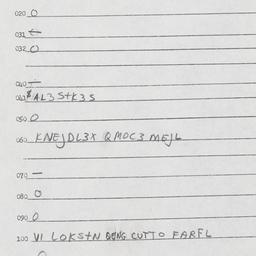 020 O
031 t
032 O
040 -
041 $AL3 StK3S
050 O
060 KNEJDL3X QMOC3 MEJL
070 -
080 O
090 O
100 VI LOKStN CUTTO FARFL